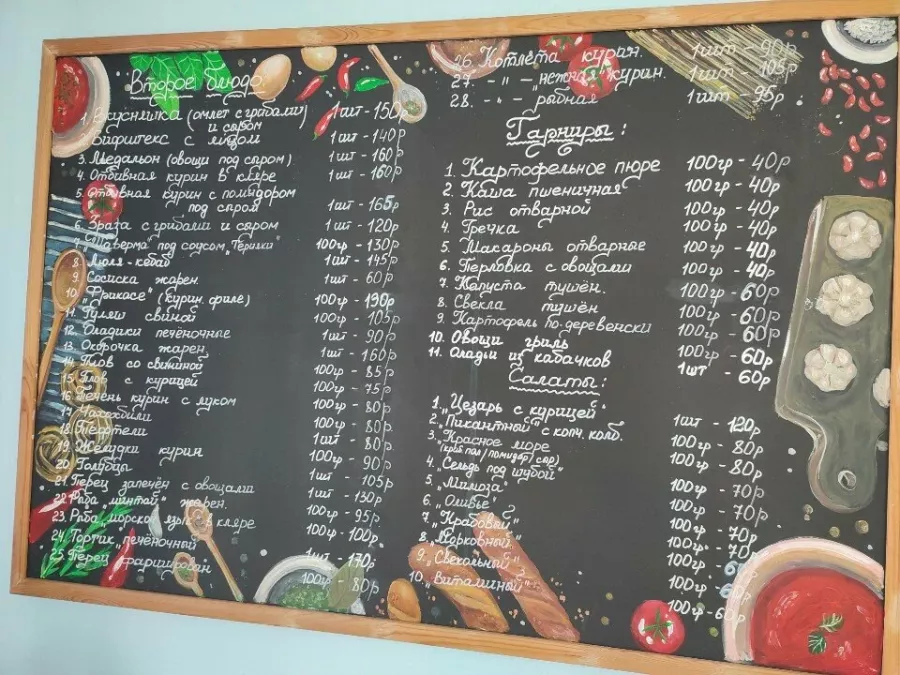 Второе блюдо
1. Вкуснятка (омлет с грибами и сыром) 1шт - 150р
Бифштекс с яйцом 1шт - 140р
3. Медальон (овощи под сыром) 1шт - 160р
4. Отбивная курин в кляре 1шт - 160р
5. Отбивная курин с помидором
под сыром 1шт - 165р
6. Зраза с грибами и сыром 1шт - 120р
7. "Шаверма" под соусом "Терияки" 100гр - 130р
8. Люля-кебаб 1шт - 145р
9. Сосиска жарен. 1шт - 60р
10. "Фрикасе" (курин. филе) 100гр - 190р
11. Гуляш свиной 100гр - 105р
12. Оладики печёночные 1шт - 90р
13. Окорочка жарен. 1шт - 160р
14. Плов со свининой 100гр - 85р
15. Плов с курицей 100гр - 75р
16. Печень курин с луком 100гр - 80р
17. Чахохбили 100гр - 80р
18. Тефтели 1шт - 80р
19. Желудки курин 100гр - 90р
20. Голубцы 1шт - 105р
21. Перец запечён с овощами 1шт - 130р
22. Рыба "минтай" жарен. 100гр - 95р
23. Рыба "морской язык" в кляре 100гр - 100р
24. Тортик "печёночный" 1шт - 170р
25. Перец фарширован 100гр - 80р
26. Котлета курин. 1шт - 90р
27. - " - "нежная" курин. 1шт - 105р
28. - " - рыбная 1шт - 95р
Гарниры:
1. Картофельное пюре 100гр - 40р
2. Каша пшеничная 100гр - 40р
3. Рис отварной 100гр - 40р
4. Гречка 100гр - 40р
5. Макароны отварные 100гр - 40р
6. Перловка с овощами 100гр - 40р
7. Капуста тушён. 100гр - 60р
8. Свекла тушён 100гр - 60р
9. Картофель по-деревенски 100гр - 60р
10. Овощи гриль 100гр - 60р
11. Оладьи из кабачков 1шт - 60р
Салаты:
1. "Цезарь с курицей" 1шт - 120р
2. "Пикантный" с копч. колб. 100гр - 80р
3. "Красное море 100гр - 80р
(краб пал/помидор/сыр)
4. "Сельдь под шубой" 100гр - 70р
5. "Мимоза" 100гр - 70р
6. "Оливье" 100гр - 70р
7. "Крабовый" 100гр - 70р
8. "Морковный" 100гр
9. "Свекольный" 100гр
10. "Витаминный" 100гр - 60р